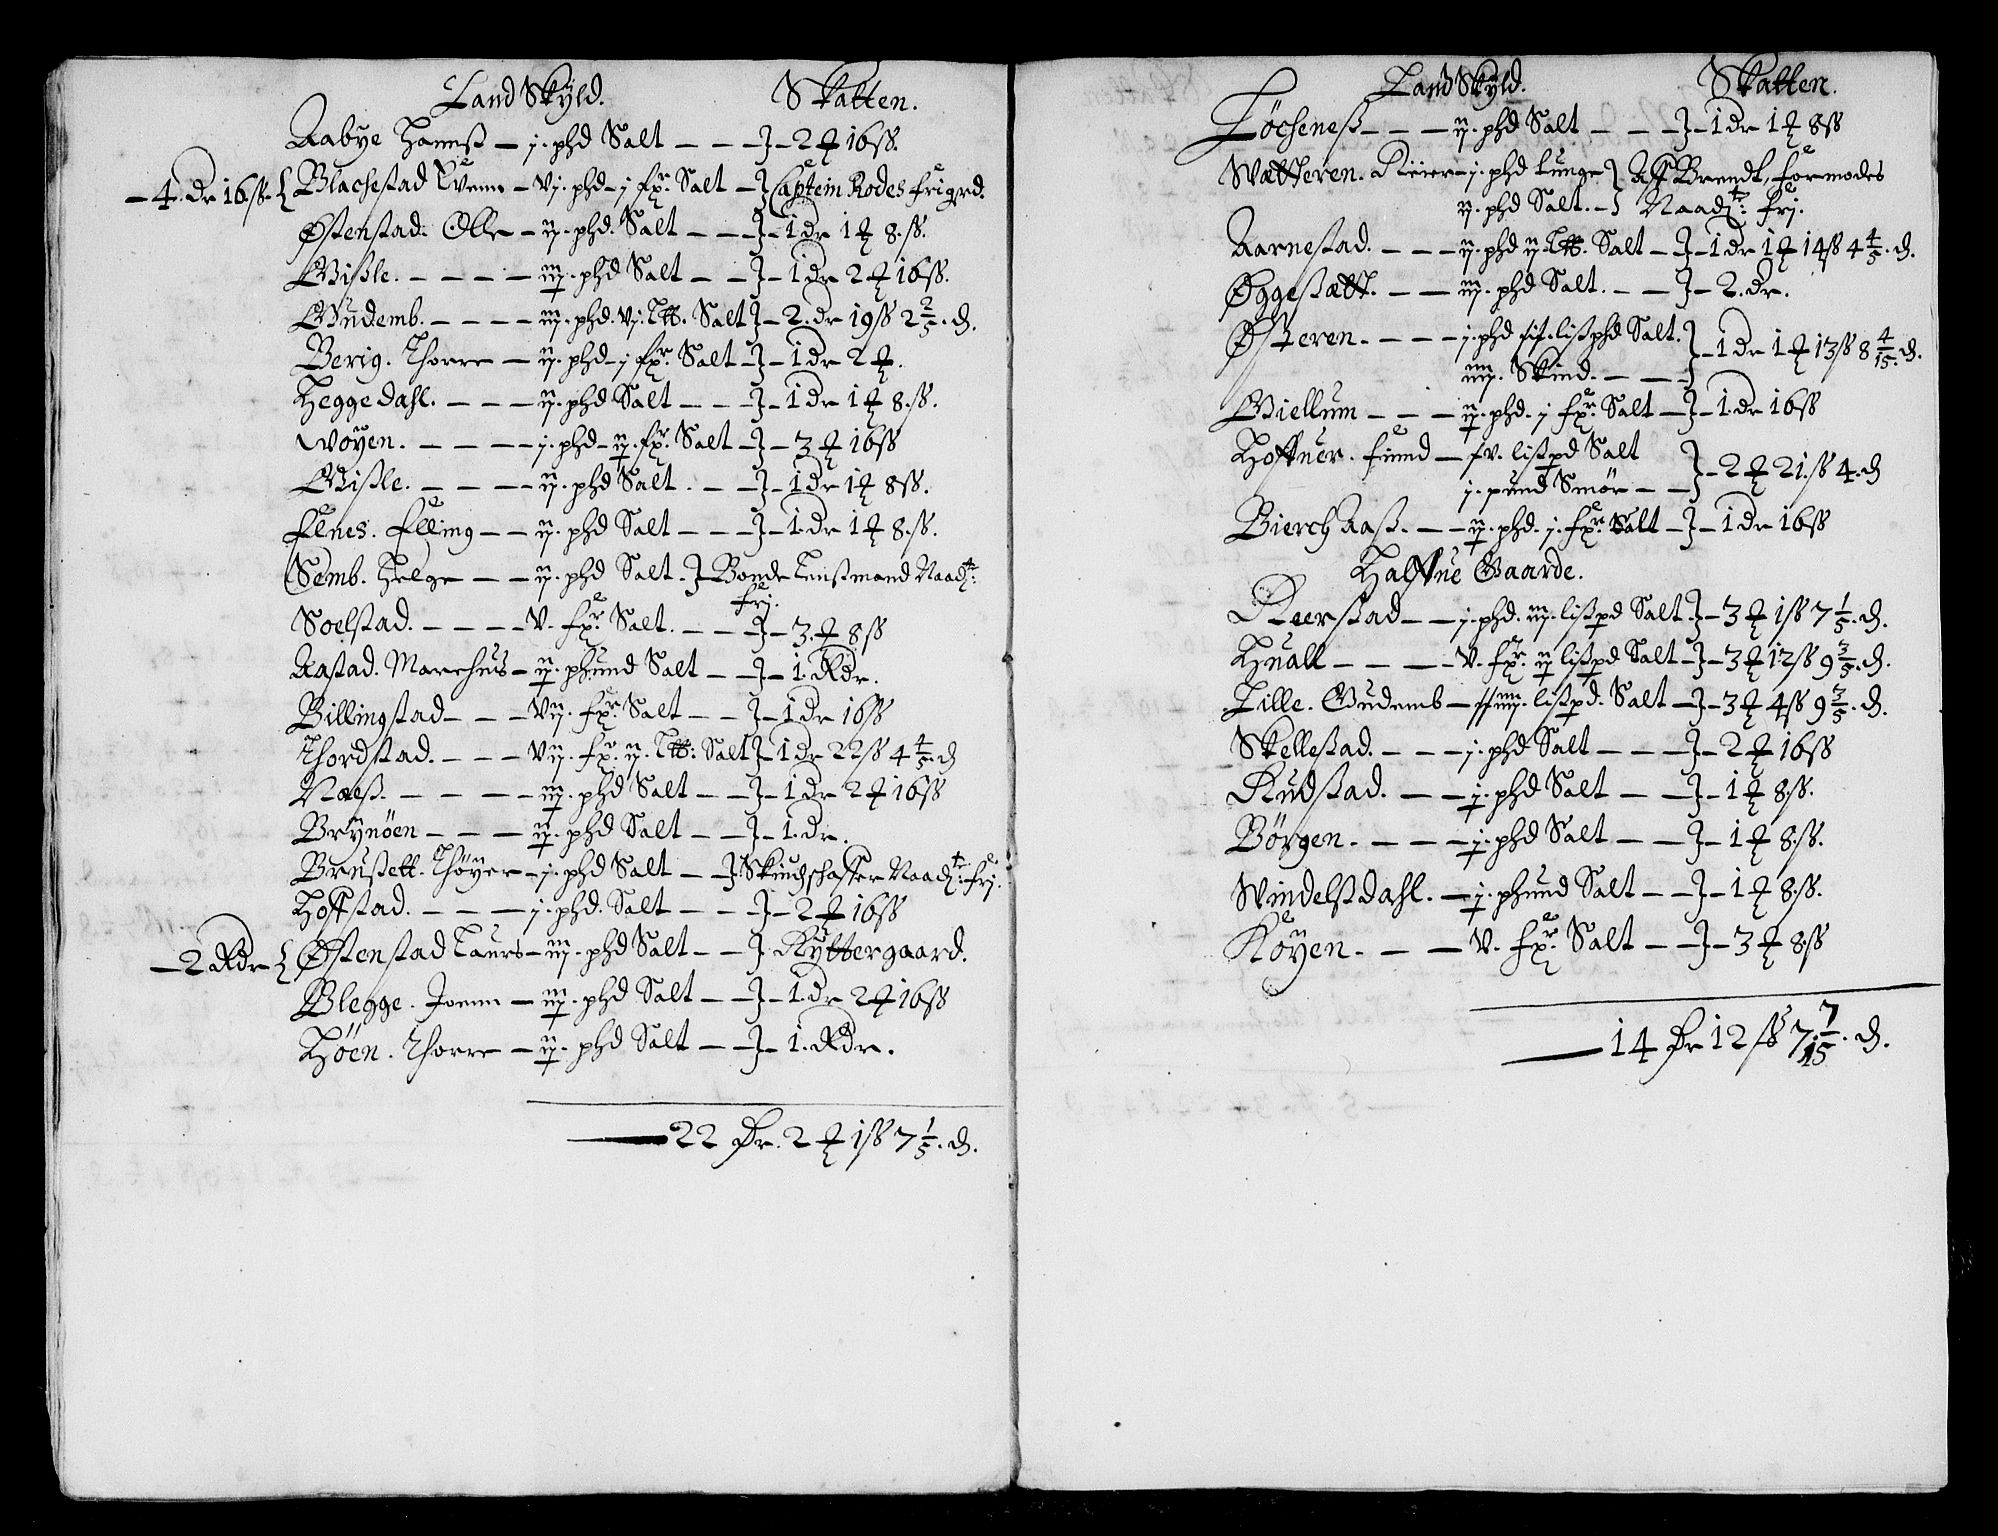 Land Skÿld. Skatten.
Aabÿe Hannß — j. phd Salt — — } — 2 ₰ 16 ß.
— 4. dr 16. ß. { Blachestad Svenn — vj. phd — j fr. Salt — } Captein Rodes frigrd.
Østenstad. Olle — ij. phd. Salt — — } — 1 dr 1 ₰ 8. ß.
Gißle. — — — — iij. phd Salt — — } — 1 dr 2 ₰ 16 ß.
Gudemb. — — — — iij. phd. vj. L℔. Salt } — 2. dr 19 ß 2 2/5. d.
Berig. Thorre — ij. phd — j fr. Salt — } — 1 dr 2 ₰.
Heggedahl. — — — ij. phd Salt — — } — 1 dr 1 ₰ 8. ß.
Woÿen. — — — — j. phd — ij. fr. Salt — } — 3 ₰ 16 ß
Gißle. — — — — ij. phd Salt. — — } — 1 dr 1 ₰ 8 ß.
Elnes. Elling — — ij. phd Salt — — } — 1. dr 1 ₰ 8. ß.
Semb. Helge — — ij. phd Salt. } Bonde Lenßmand Naadt:
frj.
Soelstad. — — — — v. fr. Salt. — — } — 3. ₰ 8 ß
Aastad. Marchus — ij. phund Salt — — } — 1. Rdr.
Billingstad — — — vij. fr. Salt — — } — 1 dr 16 ß
Thordstad. — — — vij. fr. ij. L℔: Salt } — 1 dr 22 ß 4 4/5. d
Næß. — — — — iij. phd Salt — — } — 1 dr 2 ₰ 16 ß
Brÿnöen — — — ij. phd Salt — — } — 1. dr.
Brußett. Thöÿer — j. phd Salt — — } Skiudschaffer Naadt: frj.
Hoffstad. — — — j. phd. Salt — — } — 2 ₰ 16 ß
— 2 Rdr { Østenstad Laurs — iij. phd Salt — — } Rÿttergaard.
Blegge. Jonnn — iij. phd Salt — — } — 1. dr 2 ₰ 16 ß
Höen. Thorre — ij. phd Salt — — } — 1. Rdr.
— 22 Dr. 2 ₰ 1 ß 7 1/5. d.
Land Skÿld. Skatten.
Löcheneß — — — ij. phd Salt — — } — 1 dr 1 ₰ 8 ß
Wætteren. Reier — j. phd tunge } Aff Brendt, formodes
ij. phd Salt. — } Naadt: frj.
Aarnestad. — — — ij. phd ij. L℔. Salt — } — 1 dr 1 ₰ 14 ß 4 4/5. d.
Øggeßætt. — — iij. phd Salt. — — } — 2. dr.
Østeren. — — — — j. phd xij. lißphd Salt. } — 1 dr 1 ₰ 13 ß 8 4/15. d.
iiij. Skind. — — }
Giellum — — — ij. phd. j fr. Salt — } — 1. dr 16 ß
Hoffner. fund — xv. lißpd Salt } — 2 ₰ 21. ß 4. d
j. pund Smör — — }
Bierch Aaß. — — ij. phd. j. fr. Salt — } — 1 dr 16 ß
Halffue Gaarde.
Reerstad — — j. phd. iij. lißpd Salt. } — 3 ₰ 1 ß 7 1/5. d.
Hual — — — — v. fr. ij lißpd Salt — } — 3 ₰ 12 ß 9 3/5. d.
Lille. Gudemb — xxiiij. lißpd. Salt — } — 3 ₰ 4 ß 9 3/5. d.
Skelleßtad. — — — j. phd Salt — — — } — 2 ₰ 16 ß
Rudßtad. — — j. phd Salt — — } — 1 ₰ 8. ß.
Börgen. — — — — j. phd Salt — — } — 1 ₰ 8. ß.
Windelßdahl. — j. phund Salt — — } — 1 ₰ 8. ß.
Köÿen. — — — v. fr. Salt — — } — 3 ₰ 8. ß
— 14 Dr 12 ß 7 7/15. d.